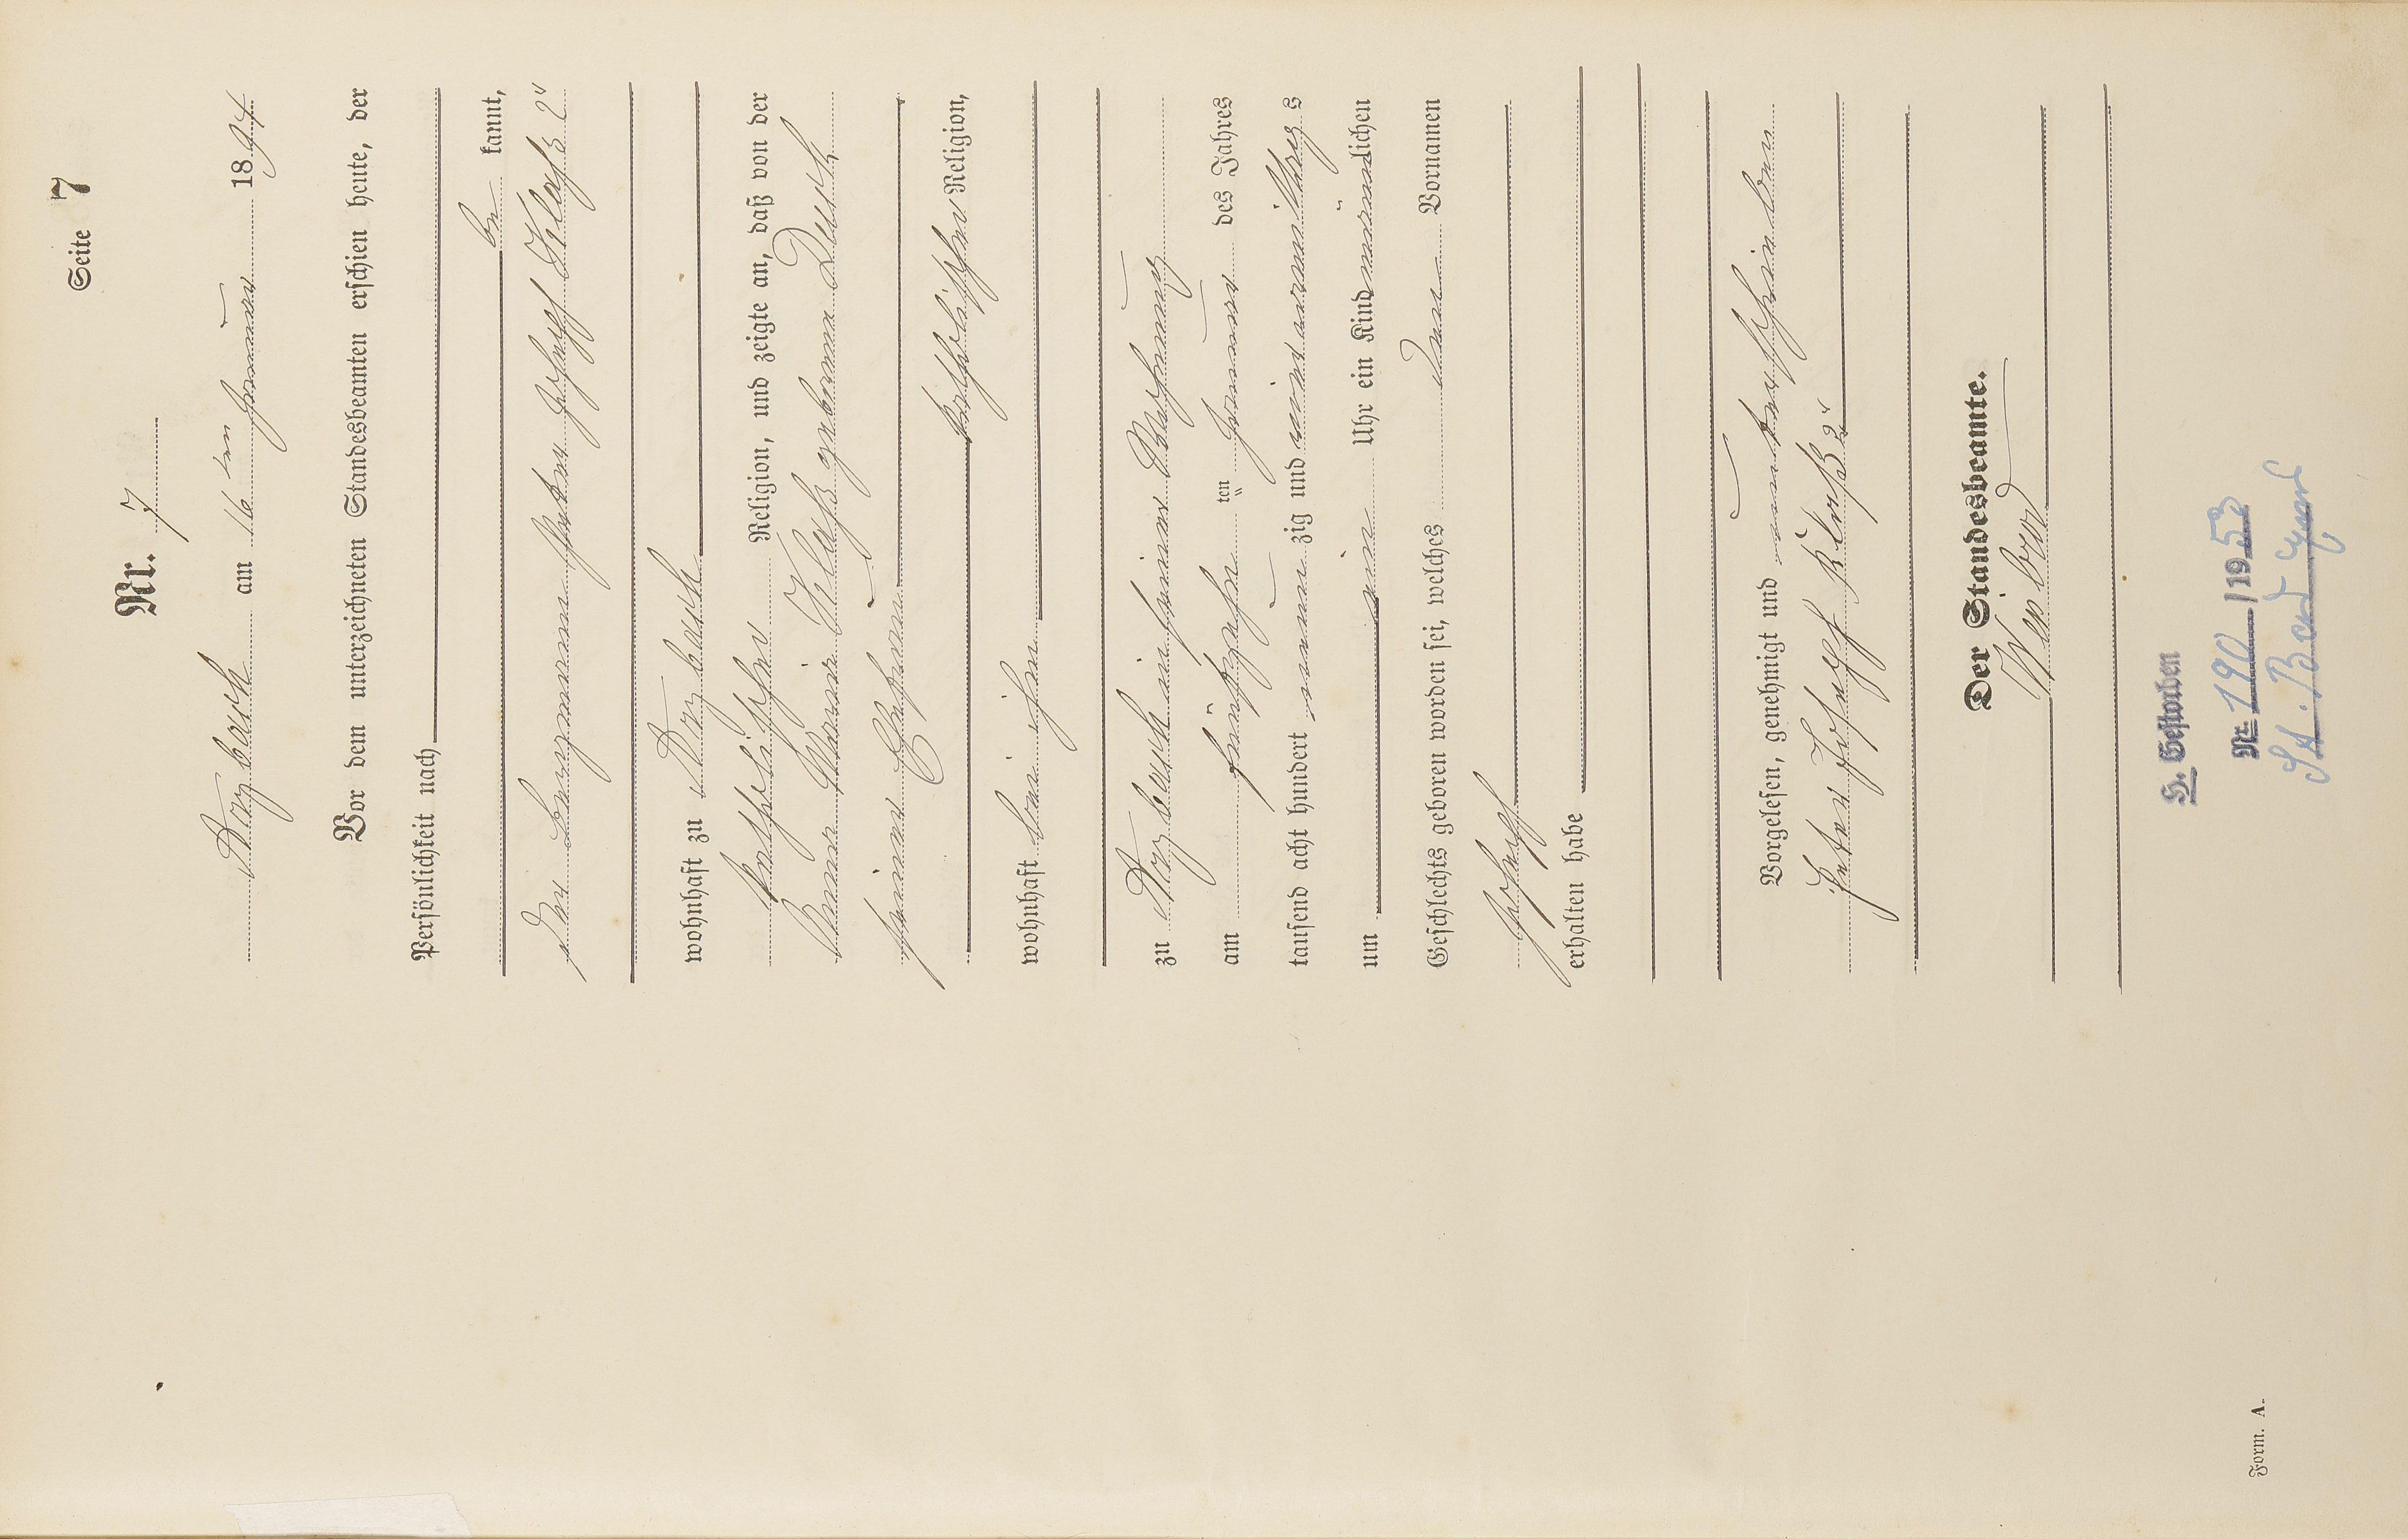 Seite 7
Nr. 7
Arzbach am 16ten Januar 1894
Vor dem unterzeichneten Standesbeamten erschien heute, der
Persönlichkeit nach
be kannt,
der Bergmann Peter Joseph Klaß 2r
wohnhaft zu Arzbach
katholischer Religion, und zeigte an, daß von der
Anna Maria Klaß geborene
seiner Ehefrau
katholischer Religion,
wohnhaft bei ihm
zu Arzbach in seiner Wohnung
am fünfzehn ten Januar des Jahres
tausend acht hundert neun zig und vier vormittags
um ein Uhr ein Kind männlichen
Geschlechts geboren worden sei, welches den Vornamen
Joseph
erhalten habe
Vorgelesen, genehmigt und unterschrieben
Peter Joseph Klaß 2r
Der Standesbeamte.
H. Gestorben
Nr. 190/1953
Form. A.